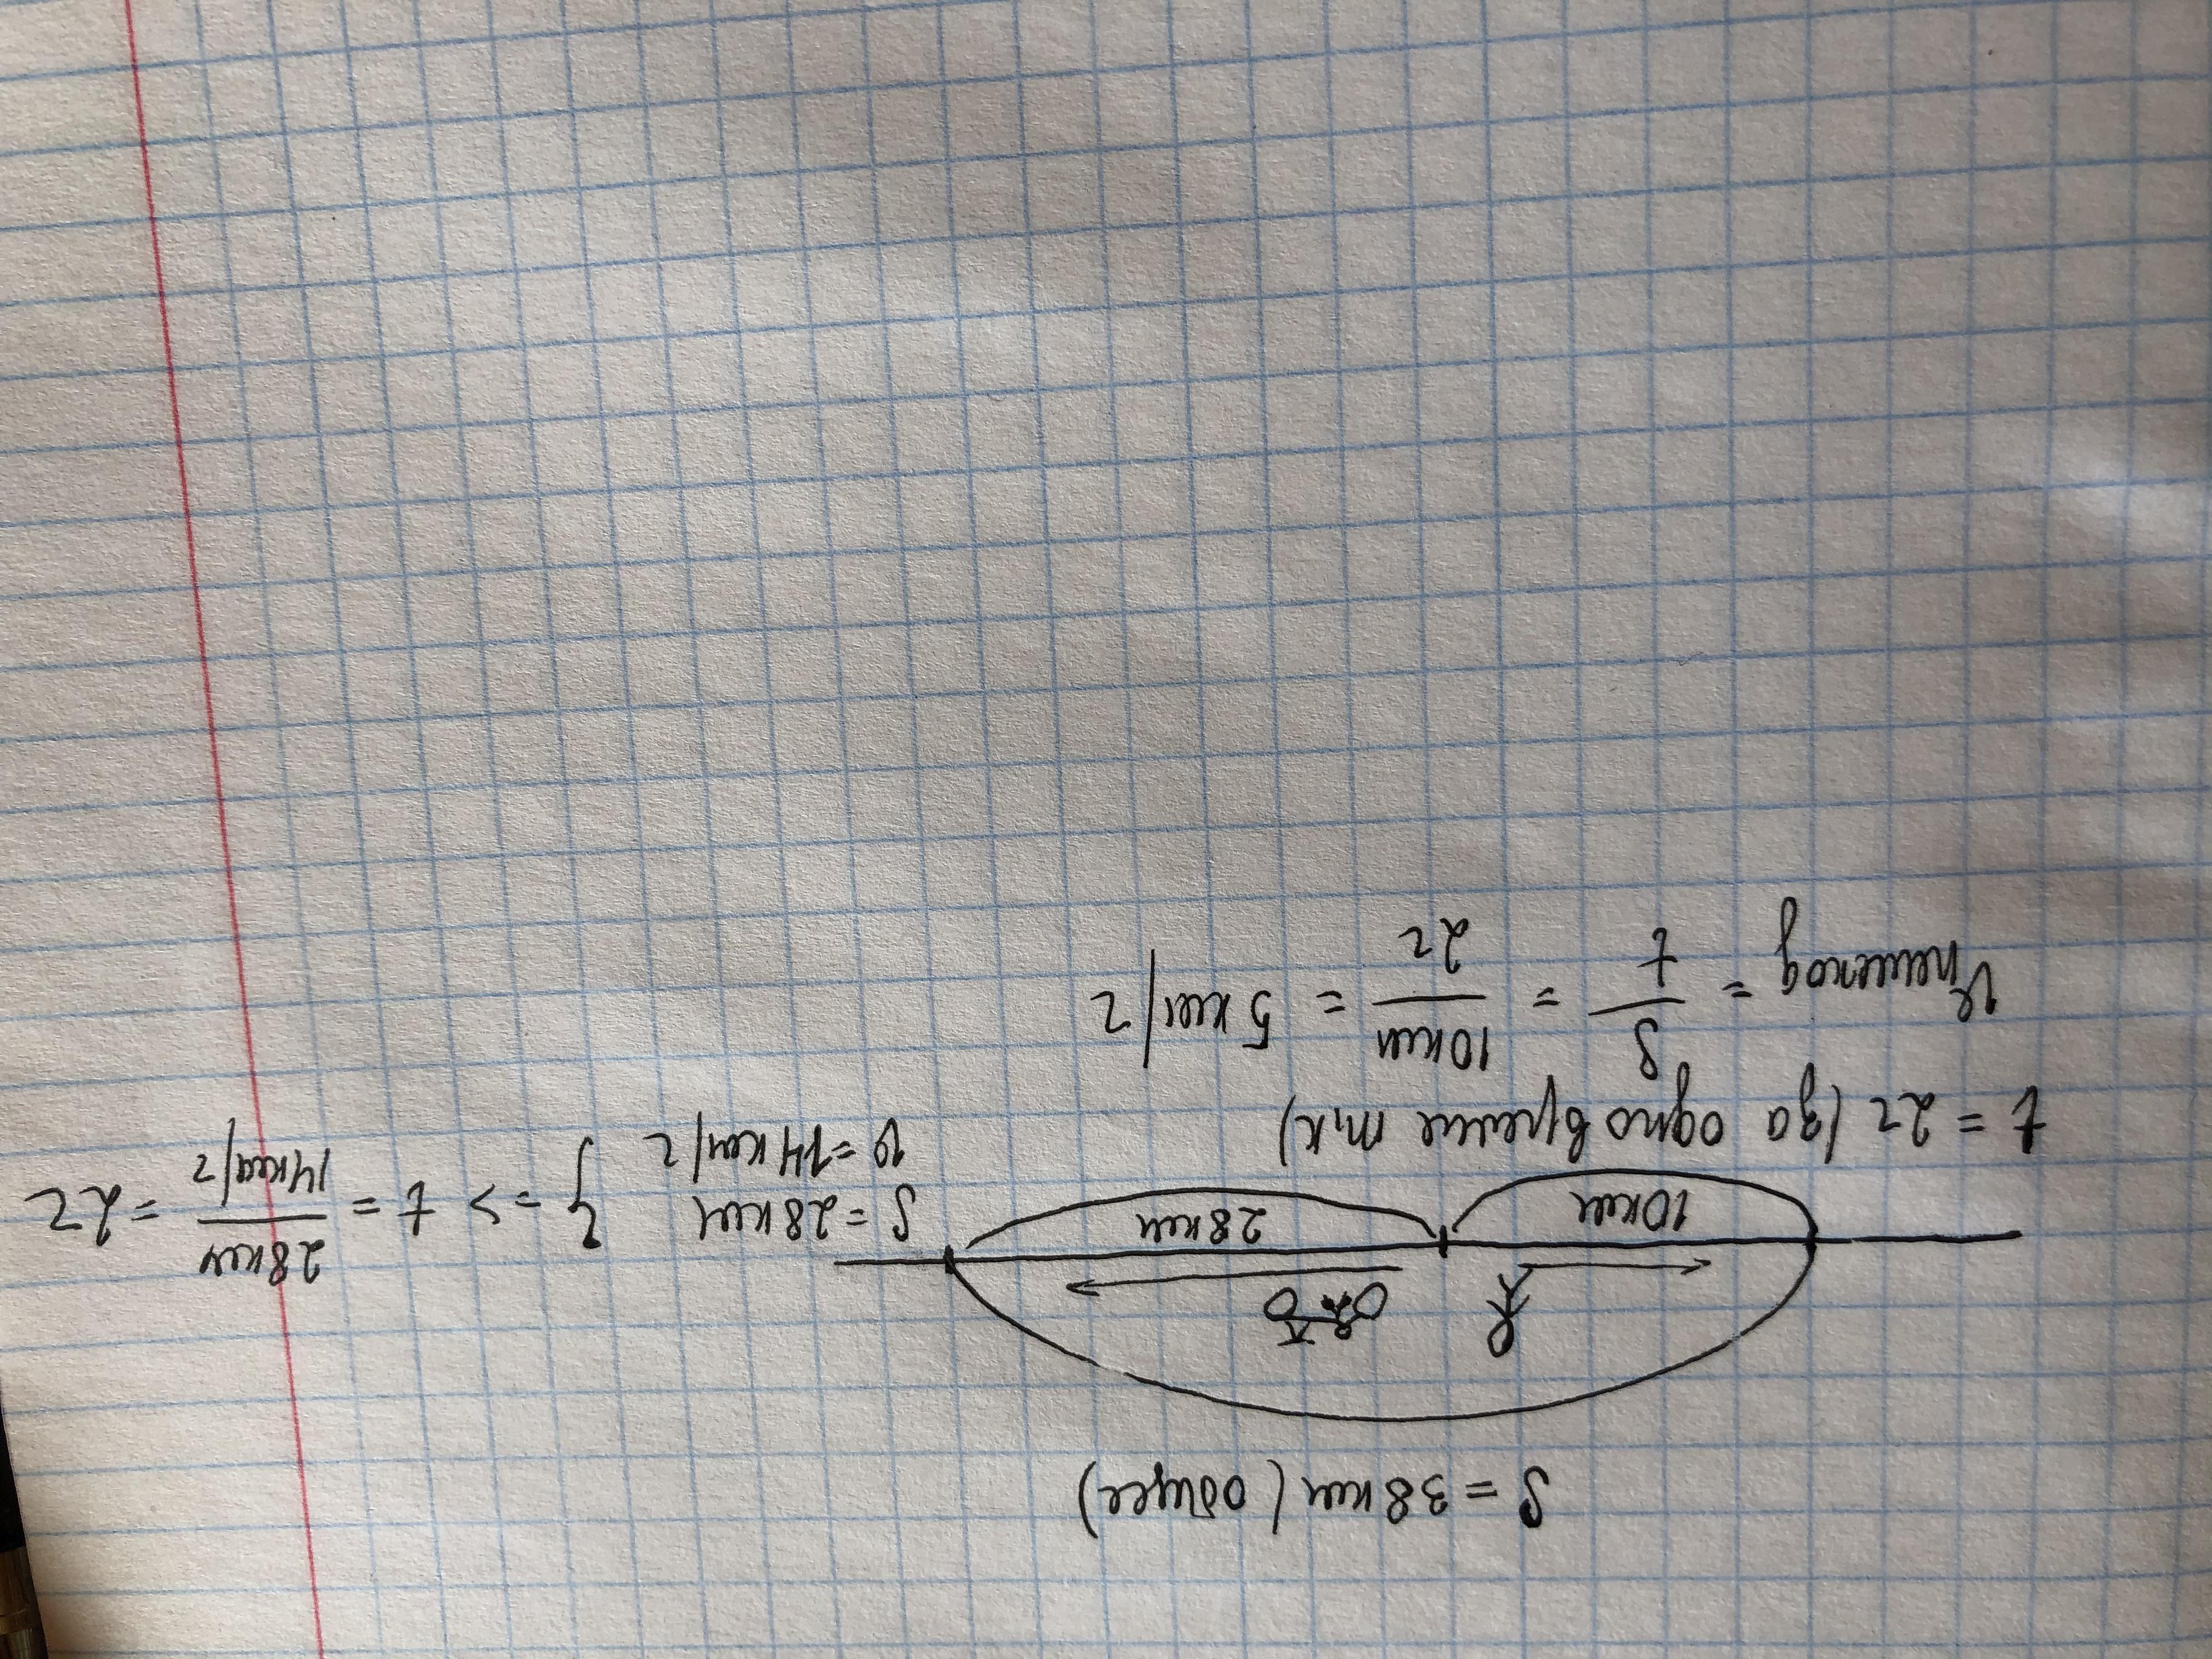 S = 38 км (общее)
10 км
28 км
S = 28 км
v = 14 км/г
} => t = 28 км / 14 км/г = 2г
t = 2г (за одно время т.к)
Vпешеход = S / t = 10 км / 2г = 5 км/г